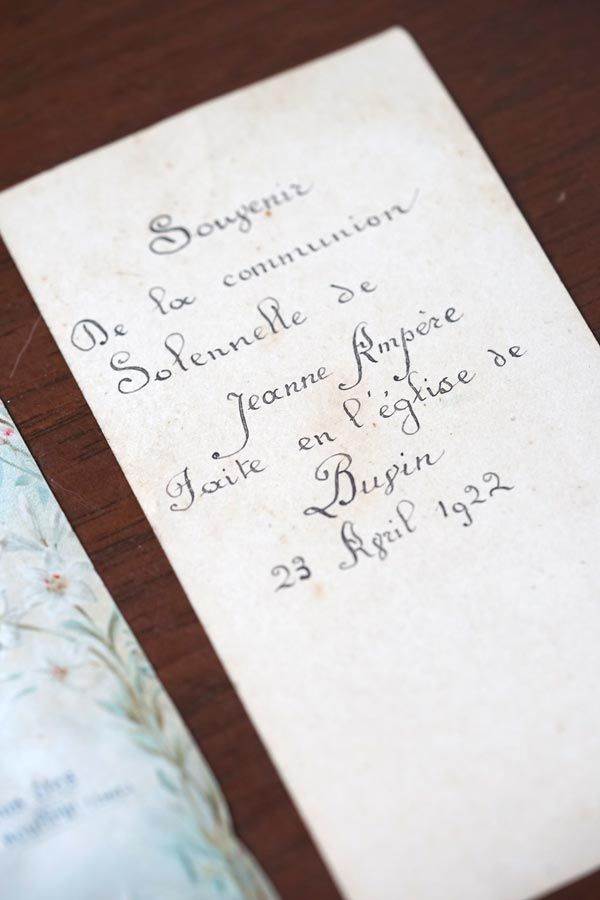 Souvenir
De la communion
Solennelle de
Jeanne Ampère
Faite en l'église de
Buvin
23 Avril 1922